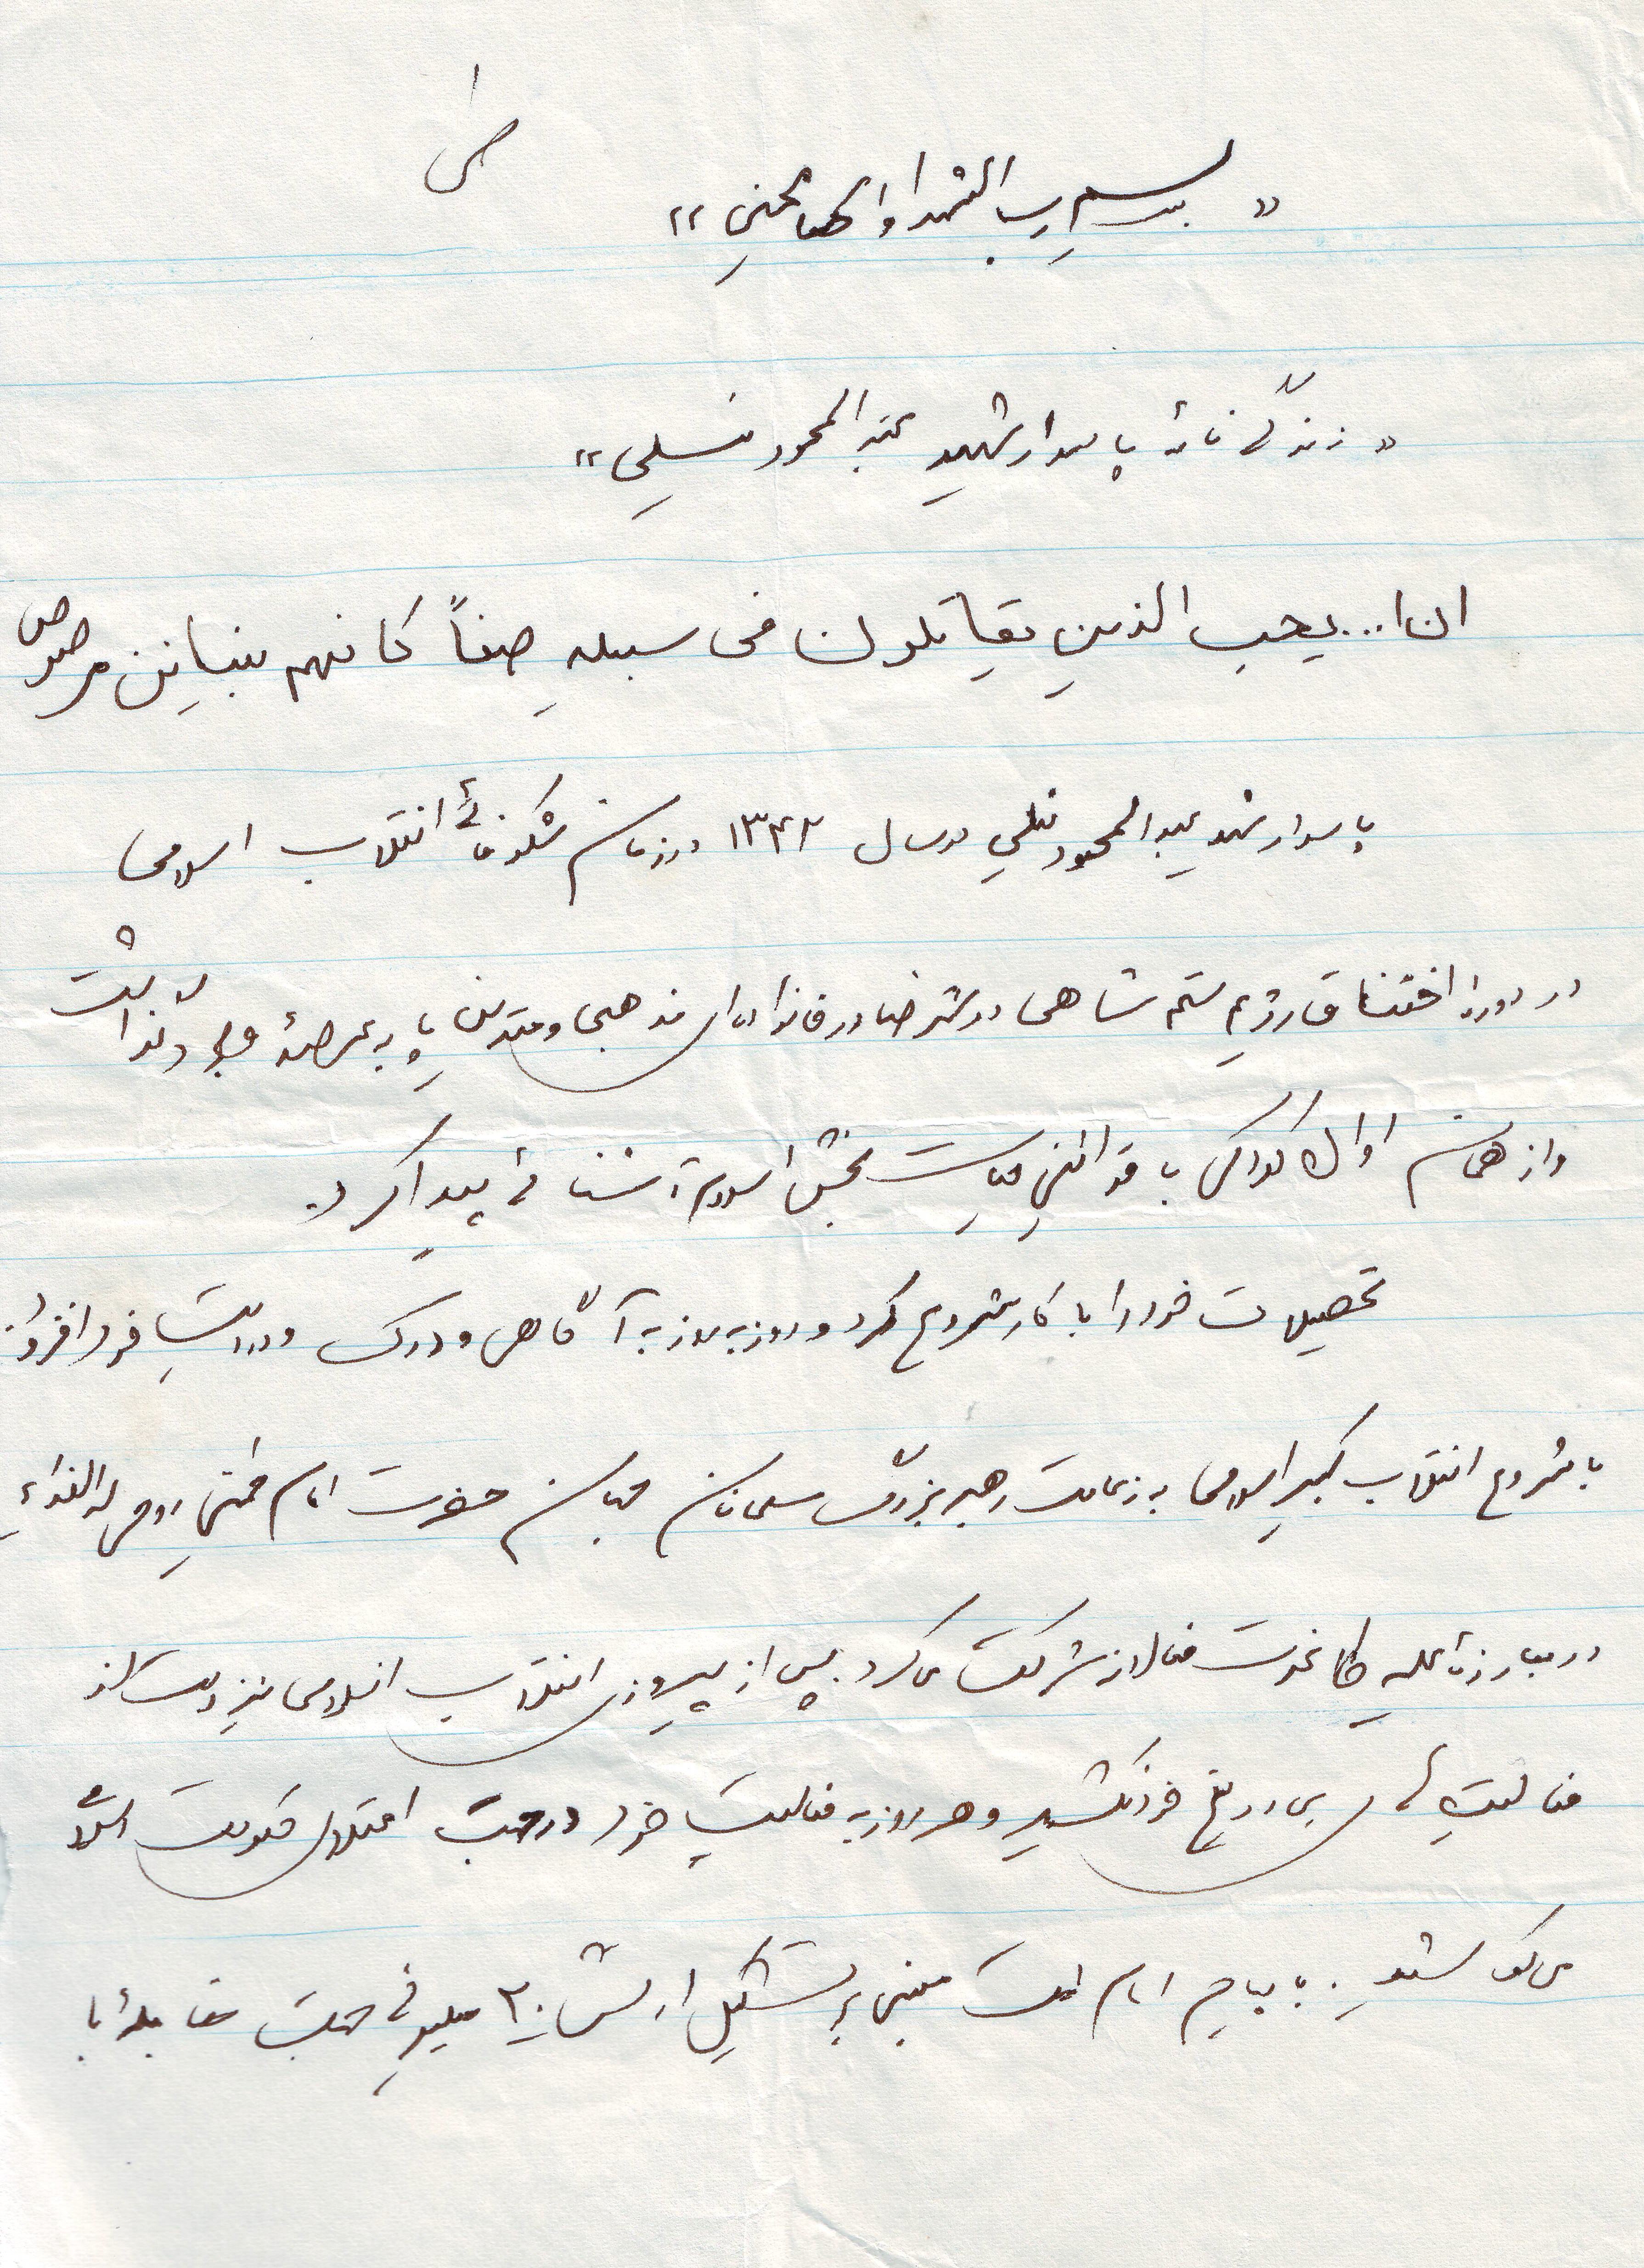 ص ۱
« بسم رب الشهدا والصالحین »
« زندگی نامهٔ پاسدار شهید عبدالمحمود نسلی »
ان ا... یحب الذین یقاتلون فی سبیله صفاً کانهم بنیانٌ مرصوص
پاسدار شهید عبدالمحمود نسلی در سال ۱۳۴۲ در زمان شکوفائی انقلاب اسلامی
در دورهٔ اختناق رژیم ستم شاهی در شهر در خانواده‌ای مذهبی و متدین پا به عرصهٔ وجود گذاشت
و از همان اوائل کودکی با قوانین حیات بخش اسلام آشنائی پیدا کرد.
تحصیلات خود را با کار شروع کرد و روز به روز به آگاهی و درک و درایت خود افزود.
با شروع انقلاب کبیر اسلامی به زعامت رهبر بزرگ مسلمانان جهان حضرت امام خمینی روحی له الفداء
در مبارزه علیه طاغوت فعالانه شرکت می‌کرد. پس از پیروزی انقلاب اسلامی نیز دست از
فعالیت‌های بی دریغ خود نکشید و هر روز به فعالیت خود در جهت اعتلای حکومت اسلامی
می کوشید. با پیام امام امت مبنی بر تشکیل ارتش ۲۰ میلیونی جهت مقابله با